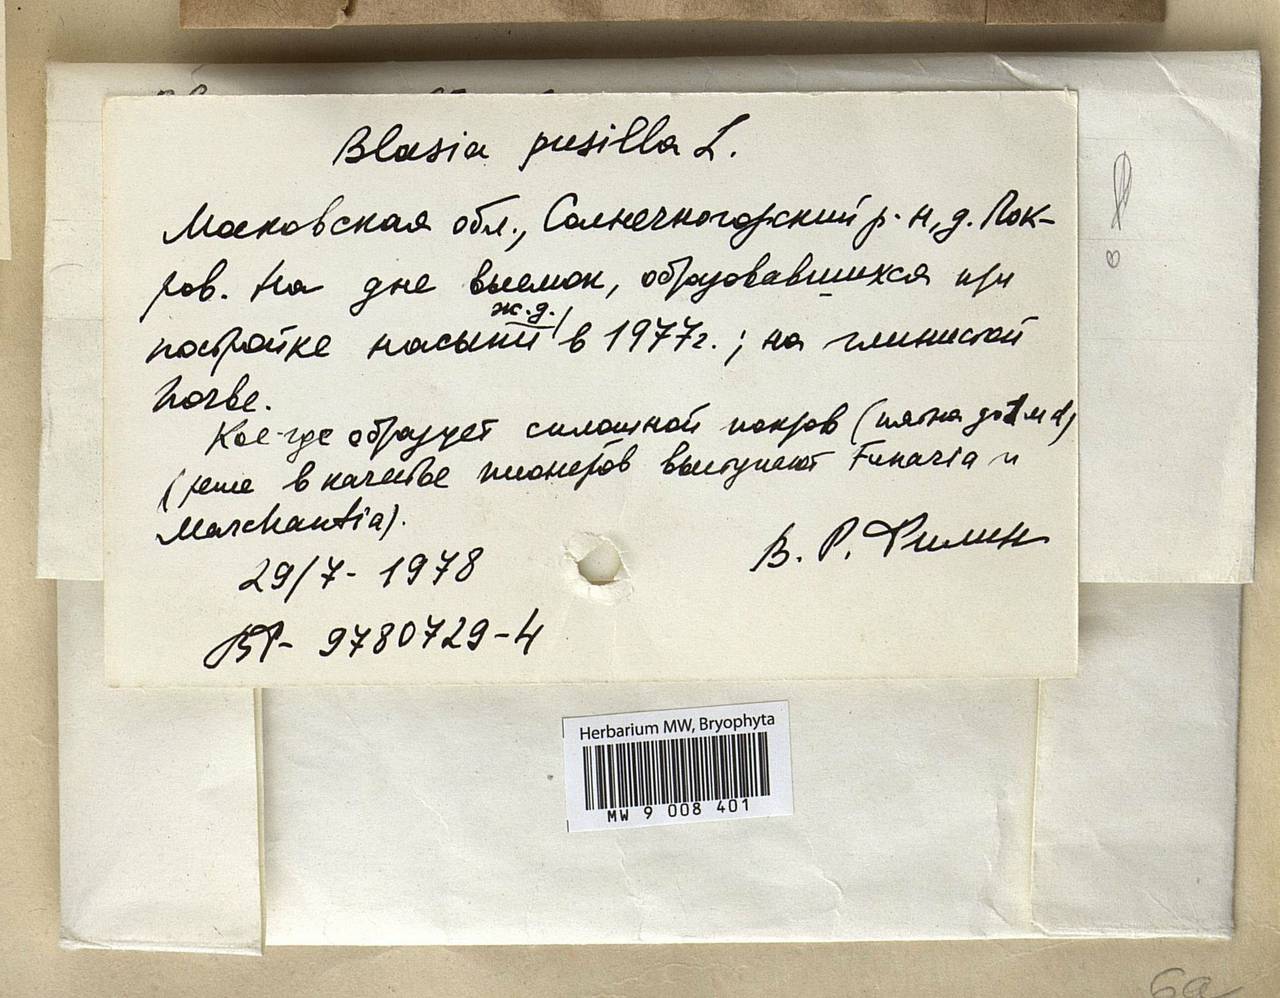 Blasia pusilla L.
Московская обл., Солнечногорский р-н, д. Пок-
ров. На дне выемок, образовавшихся при
постройке ж.д. насыпи в 1977г.; на глинистой
почве.
Кое-где образует сплошной покров (пятна до 1 м d)
(реже в качестве пионеров выступают Funaria и
Marchantia).
29/7- 1978
В. Р. Филин
ВР- 9780729-4
Herbarium MW, Bryophyta
MW 9 008 401